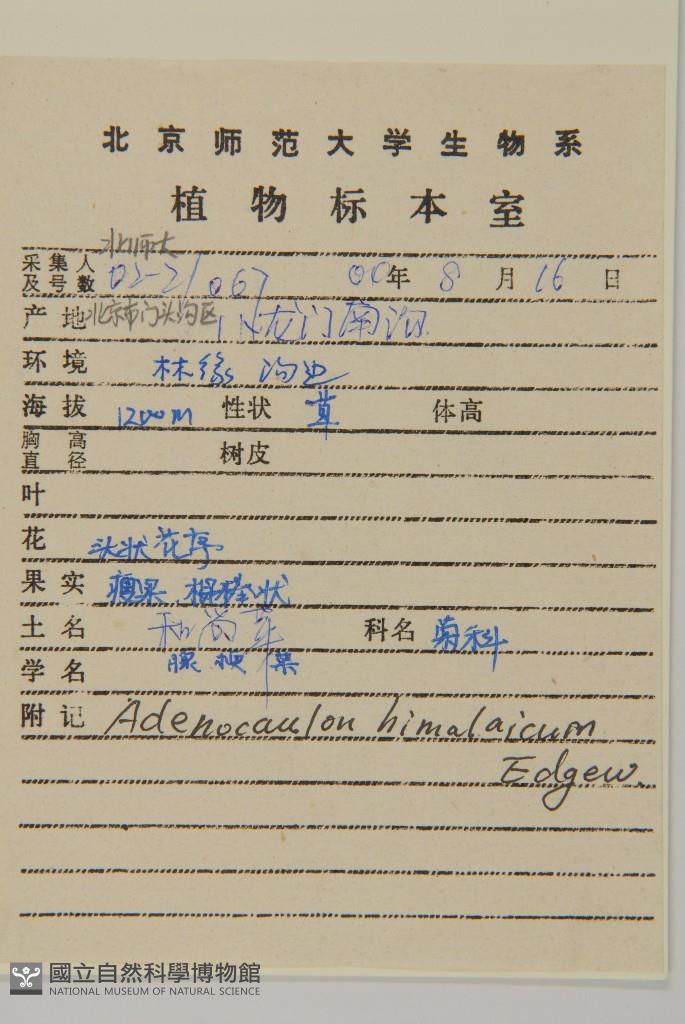 北京师范大学生物系
植物标本室
北师大
采集人及号数 02-21067 00年 8月16日
产地 北京市门头沟区 小龙门南沟
环境 林缘 沟边
海拔 1200m 性状 草 体高
胸高直径 树皮
叶
花 头状花序
果实 瘦果 棍棒状
土名 和尚菜 科名 菊科
学名 腺梗菜
附记 Adenocaulon himalaicum
Edgew.
國立自然科學博物館
NATIONAL MUSEUM OF NATURAL SCIENCE